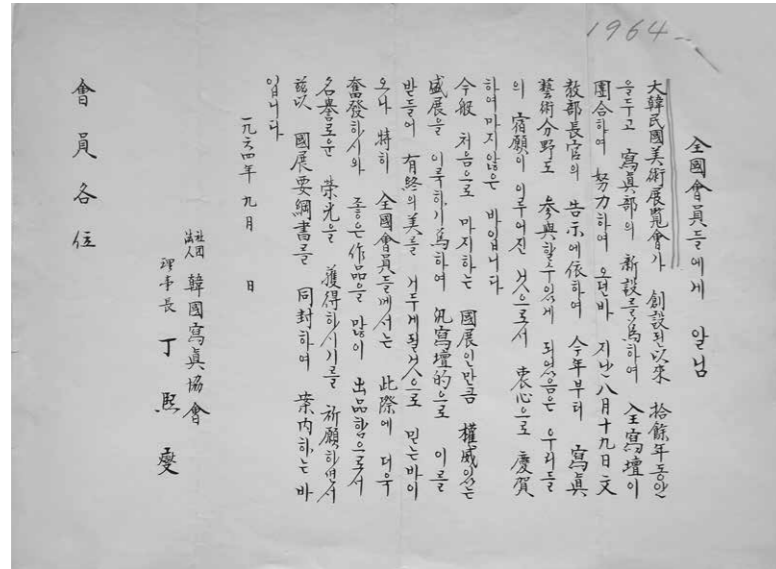 1964
全國會員들에게 알님
大韓民國美術展覽會가 創設된以來 拾餘年동안
을두고 寫眞部의 新設를爲하여 全寫壇이
團合하여 努力하여 오던바 지난八月十九日 文
敎部長官의 告示에依하여 今年부터 寫眞
藝術分野도 參與할수있게 되었음은 우리들
의 宿願이 이루어진 것으로서 衷心으로 慶賀
하여마지않은 바입니다
今般 처음으로 마지하는 國展인만큼 權威있는
盛展을 이룩하기爲하여 汎寫壇的으로 이를
받들어 有終의美를 거두게될것으로 믿는바이
오나 特히 全國會員들께서는 此際에 더욱
奮發하시와 좋은作品을 많이 出品함으로서
名譽로운 榮光을 獲得하시기를 祈願하면서
玆以 國展要綱書를 同封하여 案内하는바
입니다
一九六四年 九月 日
社団法人 韓國寫眞協會
理事長 丁熙燮
會員各位